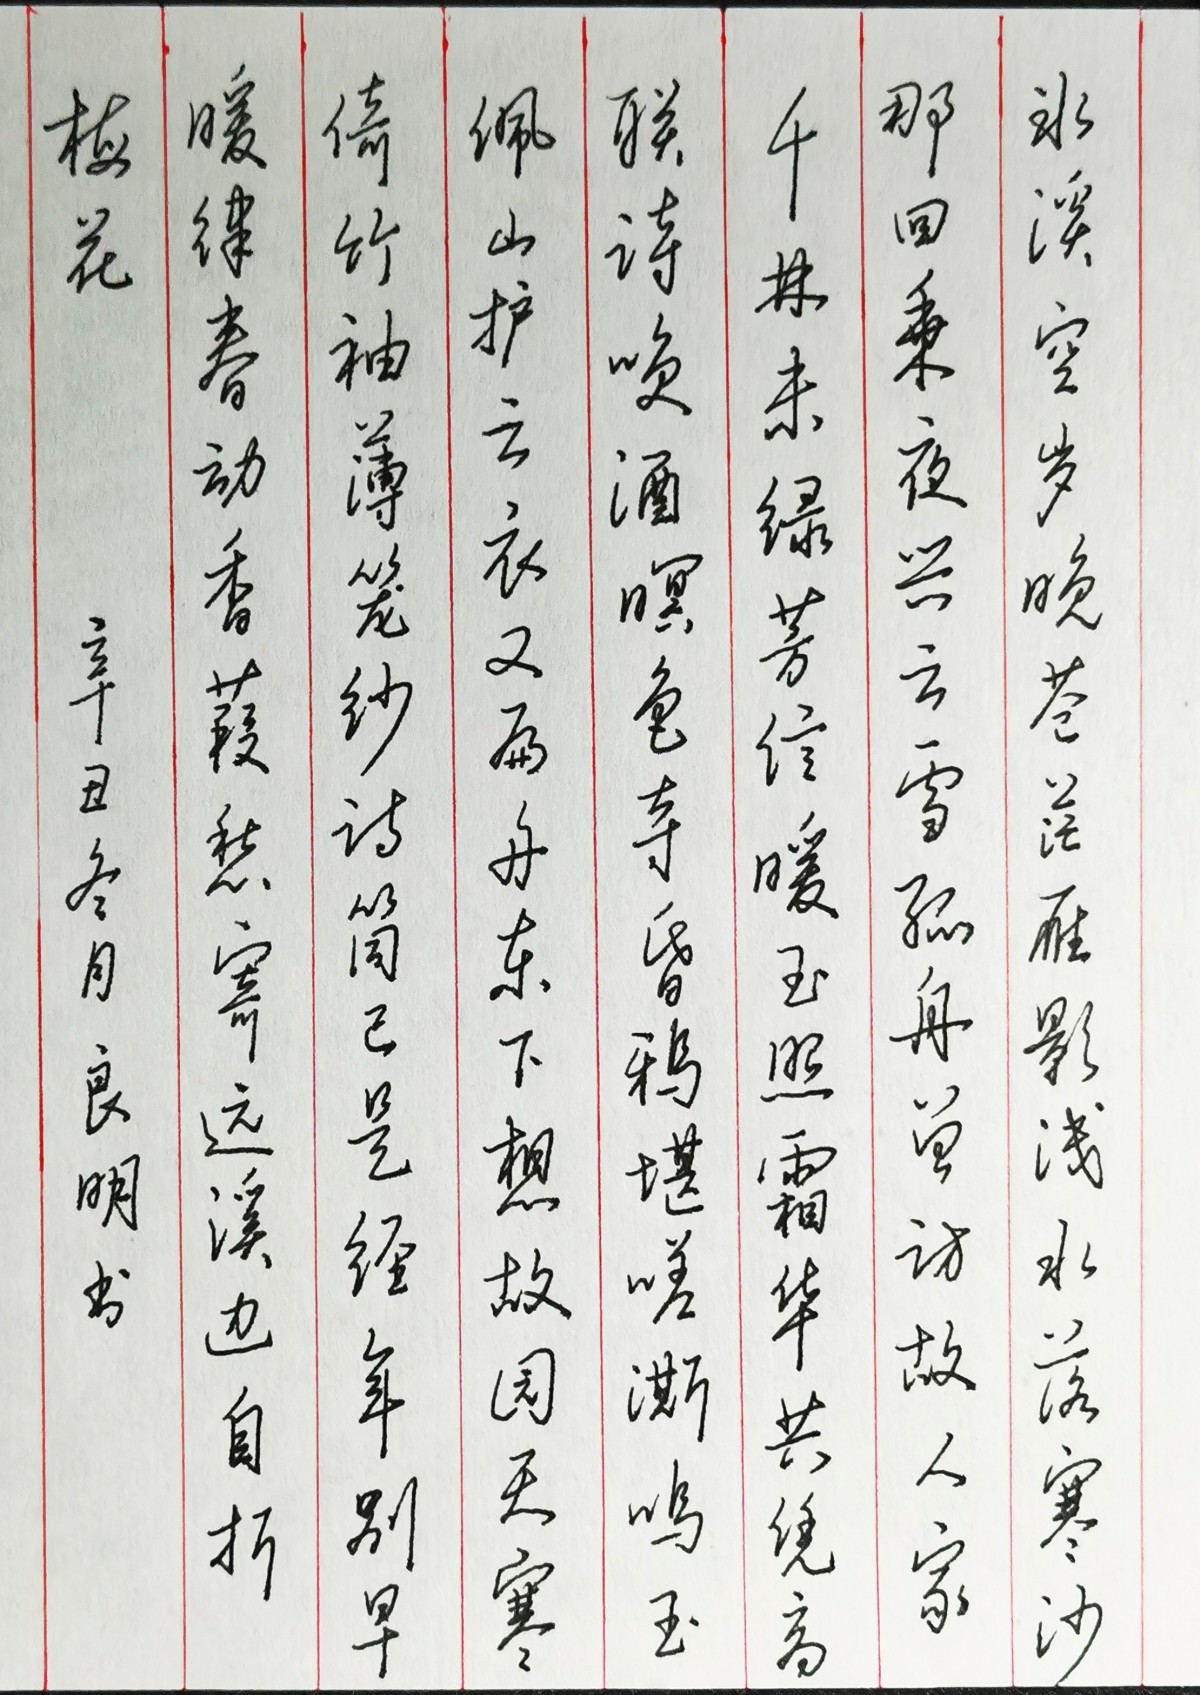 冰溪空岁晚苍茫雁影浅水落寒沙
那回乘夜兴云雪孤舟曾访故人家
千林未绿芳信暖玉照霜华共凭高
联诗唤酒暝色夺昏鸦堪嗟澌呜玉
佩山护云衣又扁舟东下想故园天寒
倚竹袖薄笼纱诗筒已是经年别早
暖律春动香葭愁寄远溪边自折
梅花 辛丑冬月良明书